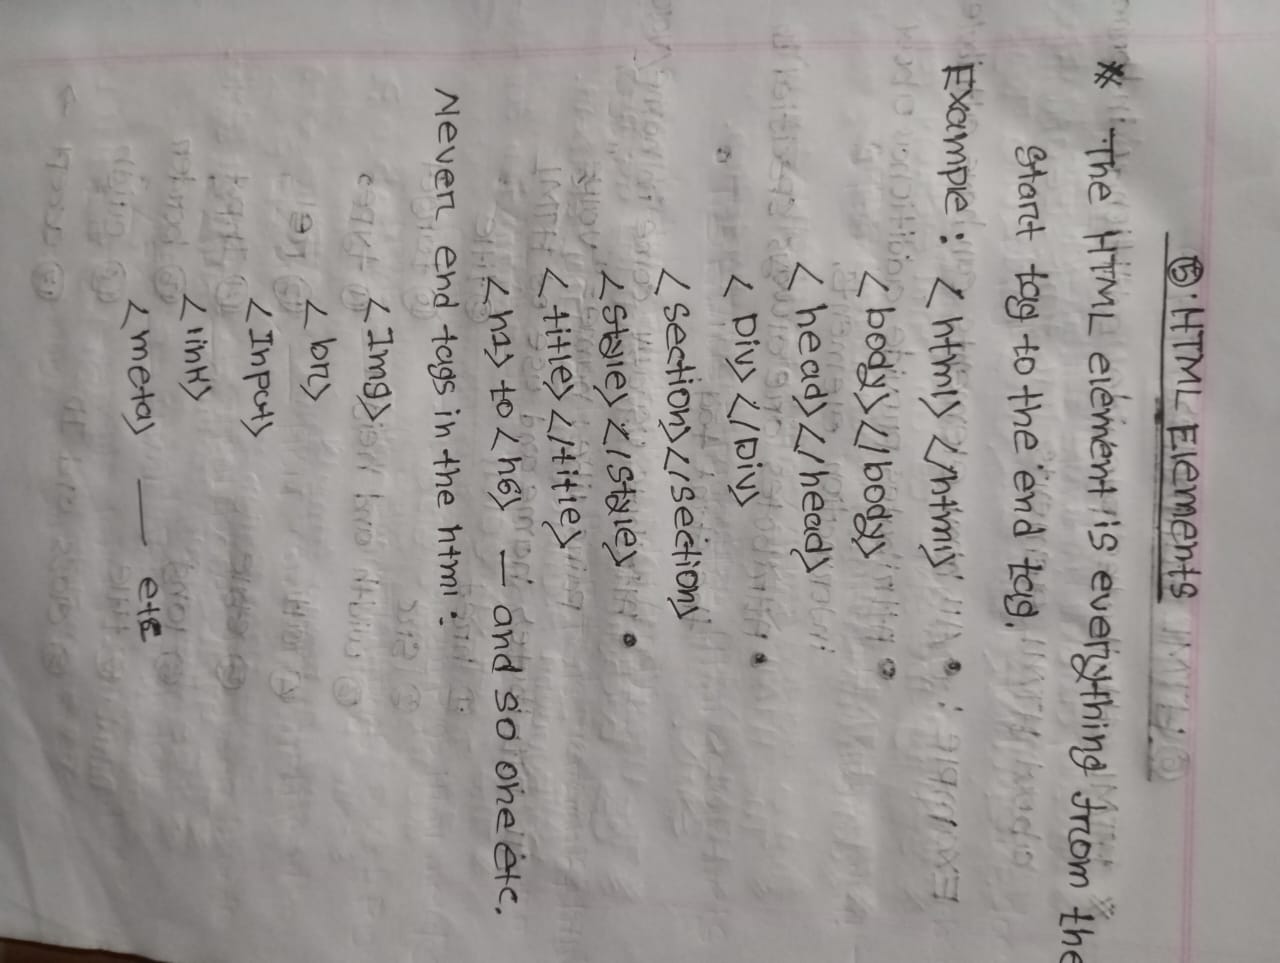 ⑤. HTML Elements
* The HTML element is everything from the
start tag to the end tag.
Example : <html> </html>
<body></body>
<head></head>
<Div></Div>
<section></section>
<style></style>
<title></title>
<h1> to <h6> — and so one etc.
Never end tags in the html :
<Img>
<br>
<Input>
<link>
<meta> — etc